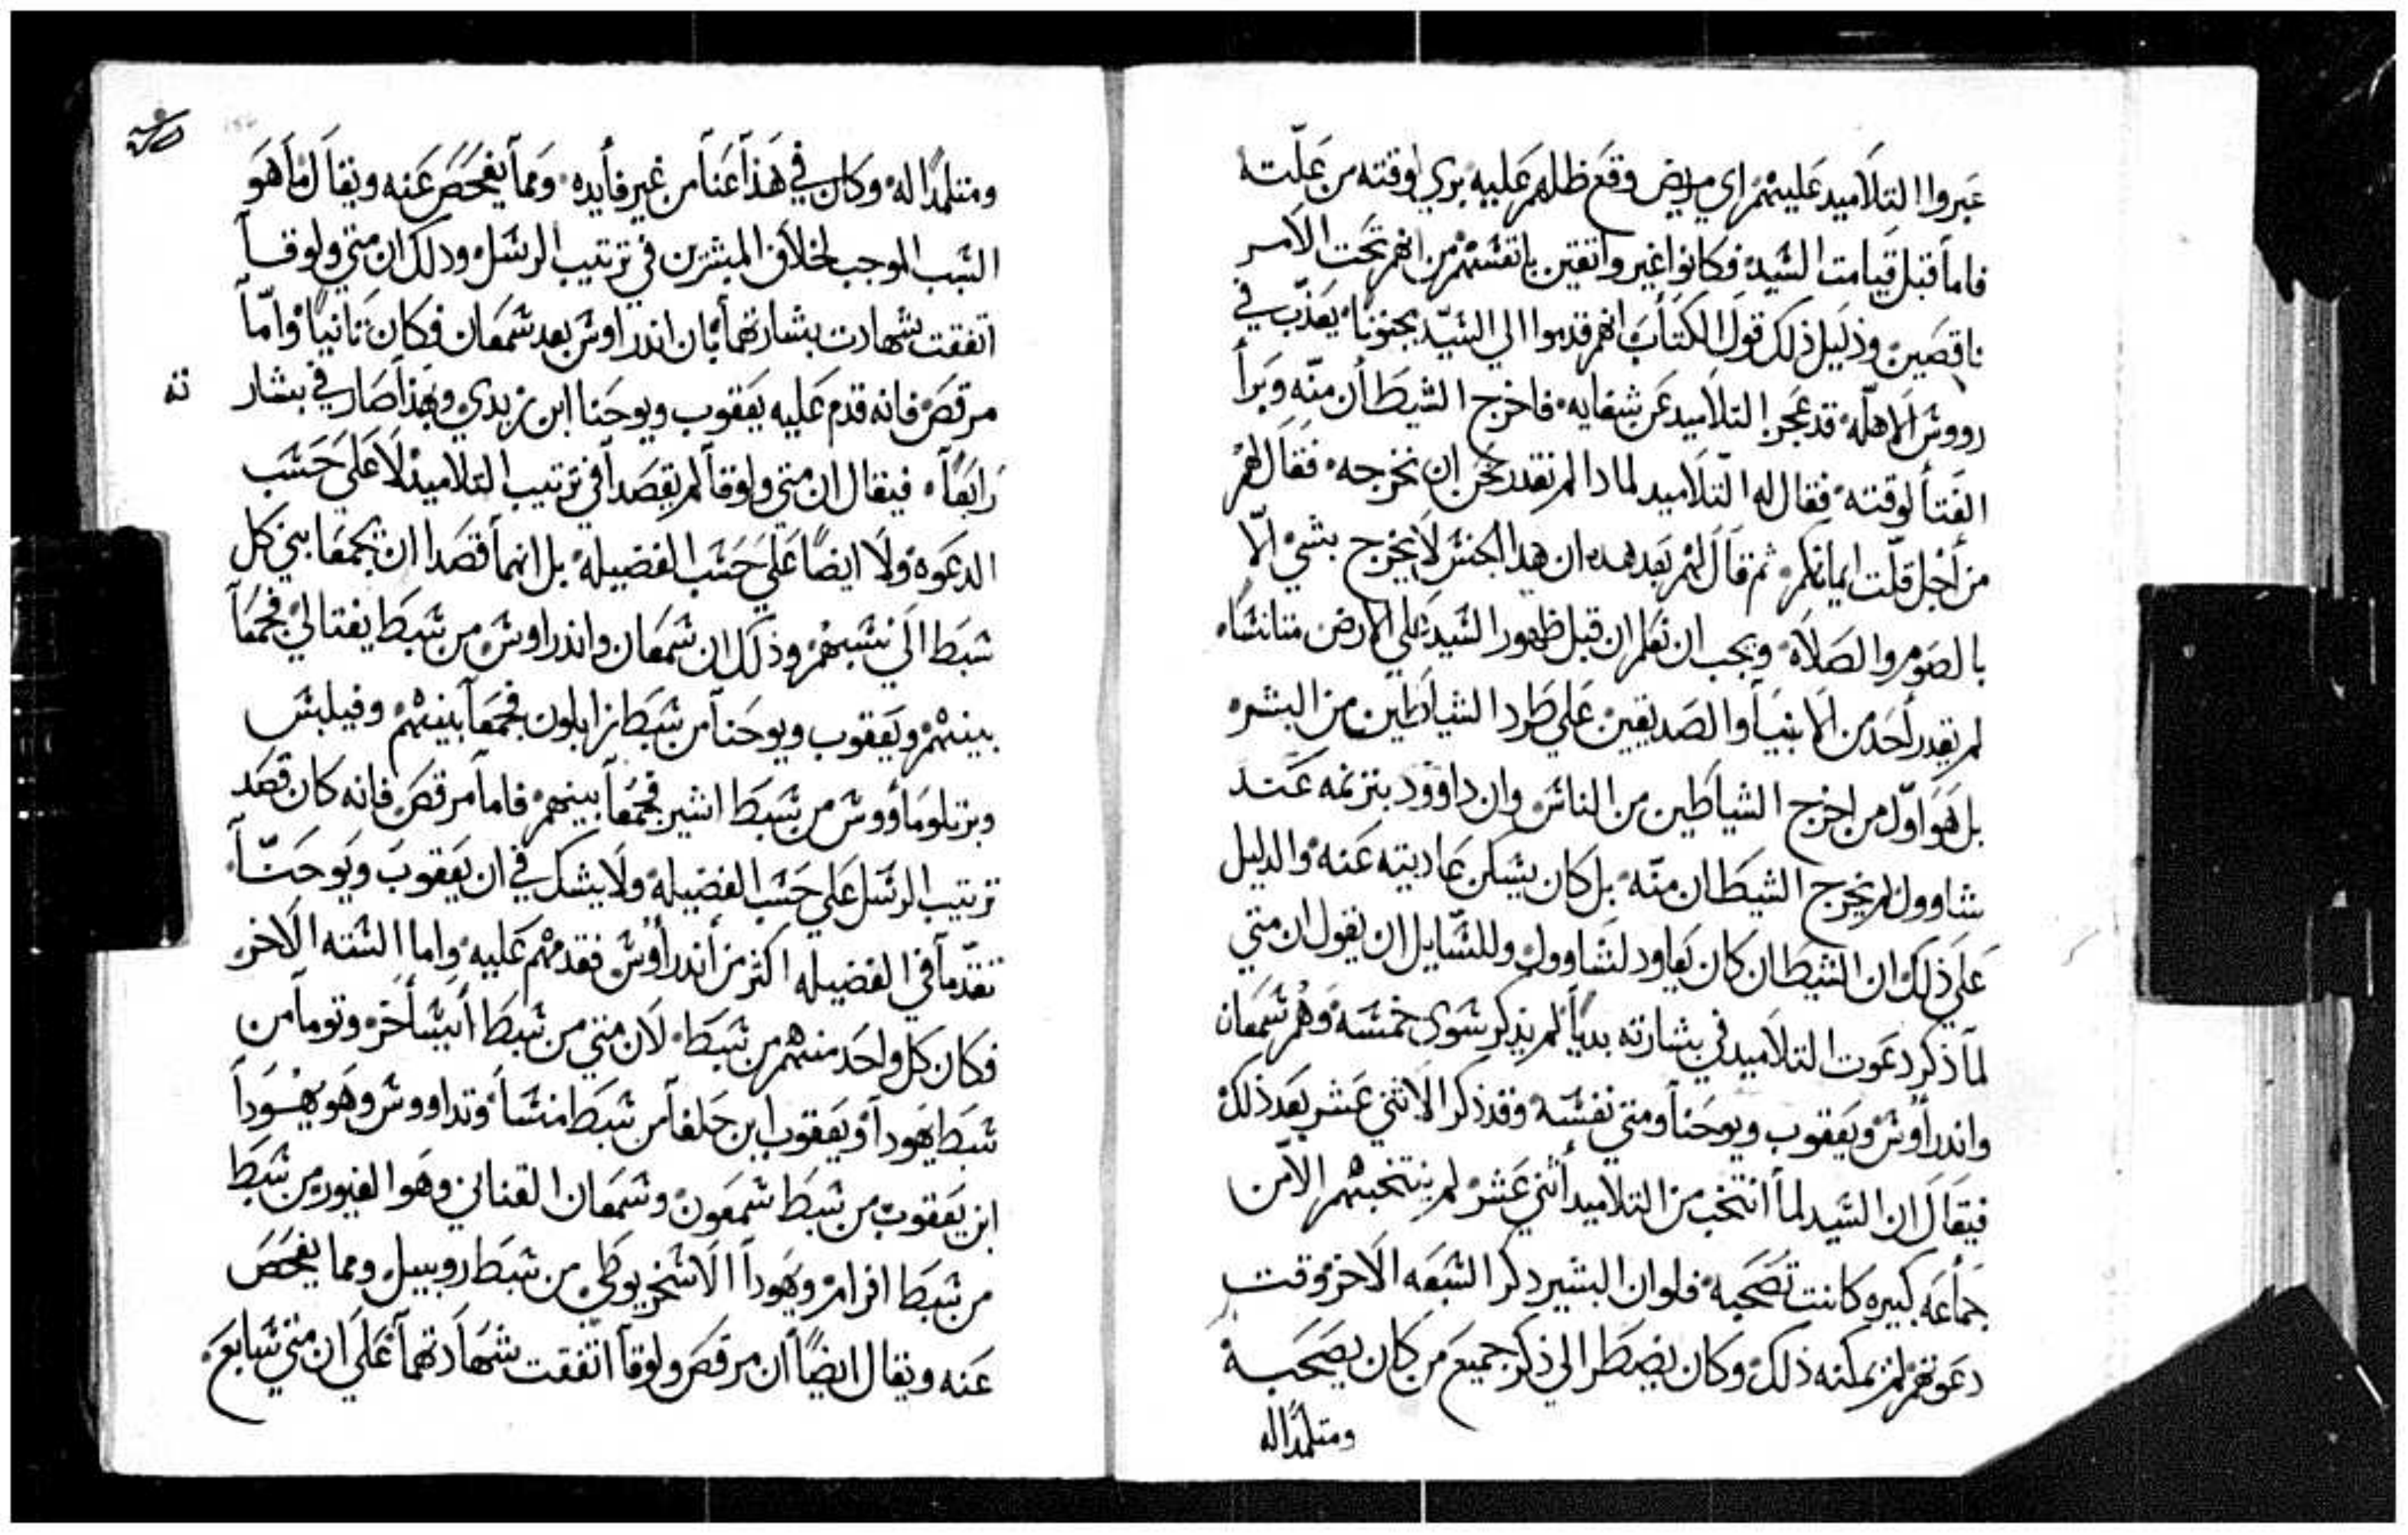 عبروا التلاميد عليهم اي مريض وقع ظلهم عليه بري لوقته من علته
فاما قبل قيامت السيد فكانوا غير واتقين بانفسهم من انهم تحت الامر
ناقصين ودليل ذلك قول الكتاب انهم قدموا الي السيد مجنونا يعذب في
رووس الاهله قد عجز التلاميد عن شفايه فاخرج الشيطان منه وبرا
الفتا لوقته فقال له التلاميد لمادا لم نقدر نحن ان نخرجه فقال لهم
من اجل قلت ايمانكم ثم قال لهم بعد هده ان هدا الجنس لا يخرج بشي الا
بالصوم والصلاه ويجب ان نعلم ان قبل ظهور السيد علي الارض متانسا
لم يقدر احد من الانبيا والصديقين علي طرد الشياطين من البشر
بل هو اول من اخرج الشياطين من الناس وان داوود بترنمه عند
شاوول لم يخرج الشيطان منه بل كان يسكن عاديته عنه والدليل
علي ذلك ان الشيطان كان يعاود لشاوول وللسايل ان يقول ان متي
لما ذكر دعوت التلاميد في بشارته بديا لم يذكر سوي خمسه وهم شمعان
واندراوس ويعقوب ويوحنا ومتي نفسه وقد ذكر الاثني عشر بعد ذلك
فيقال ان السيد لما انتخب من التلاميد اثني عشر لم ينتخبهم الا من
جماعه كبيره كانت تصحبه فلو ان البشير دكر السبعه الاخر وقت
دعوتهم لم يمكنه ذلك وكان يضطر الي ذكر جميع من كان يصحبه
ومتلمدا له
ومتلمدا له وكان في هذا عنا من غير فايده ومما يفحص عنه ويقال ما هو
السبب الموجب لخلاف المبشرين في ترتيب الرسل ودلك ان متي ولوقا
اتفقت شهادت بشارتهما بان اندراوس بعد شمعان فكان تانيا واما
مرقص فانه قدم عليه يعقوب ويوحنا ابن زبدي وبهذا صار في بشار
ته
رابعا فيقال ان متي ولوقا لم يقصدا في ترتيب التلاميذ لا علي حسب
الدعوه ولا ايضا علي حسب الفضيله بل انهما قصدا ان يجمعا بني كل
سبط الي نسبهم وذلك ان شمعان واندراوس من سبط يفتالي فجمعا
بينهم ويعقوب ويوحنا من سبط زابلون فجمعا بينهم وفيلبس
وبرتلوماووس من سبط اشير فجمعا بينهم فاما مرقص فانه كان قصد
ترتيب الرسل علي حسب الفضيله ولا يشك في ان يعقوب ويوحنا
تقدما في الفضيله اكثر من اندراوس فقدمهم عليه واما السته الاخر
فكان كل واحد منهم من سبط لان متي من سبط ايساخر وتوما من
سبط يهودا ويعقوب ابن حلفا من سبط منسا وتداووس وهو يهودا
ابن يعقوب من سبط شمعون وشمعان القناني وهو الغيور من سبط
من سبط افرام ويهودا الاسخريوطي من سبط روبيل ومما يفحص
عنه ويقال ايضا ان مرقص ولوقا اتفقت شهادتهما علي ان متي سابع